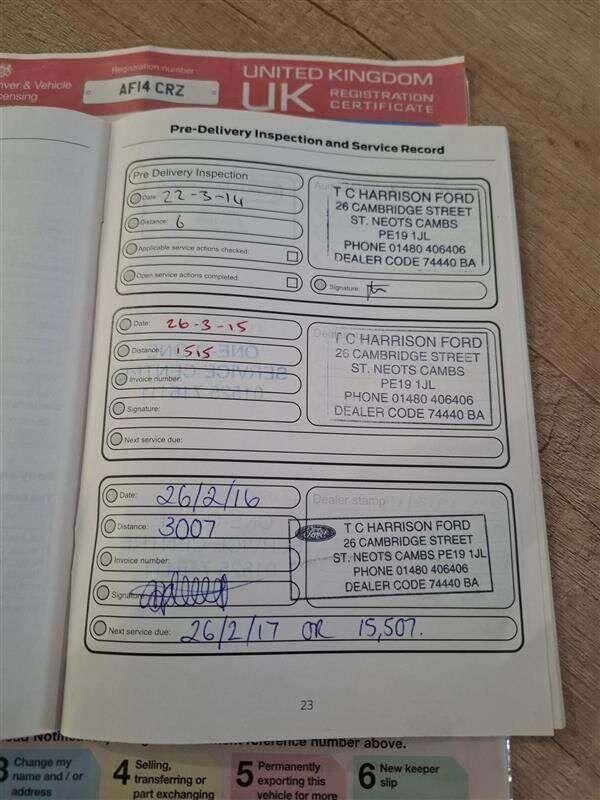 Registration number
AF14 CRZ
UNITED KINGDOM
UK REGISTRATION
CERTIFICATE
Pre-Delivery Inspection and Service Record
Pre Delivery Inspection
Date: 22-3-14
Distance: 6
Applicable service actions checked:
Open service actions completed:
T C HARRISON FORD
26 CAMBRIDGE STREET
ST. NEOTS CAMBS
PE19 1JL
PHONE 01480 406406
DEALER CODE 74440 BA
Signature:
Date: 26-3-15
Distance: 1515
Invoice number:
Signature:
Next service due:
T C HARRISON FORD
26 CAMBRIDGE STREET
ST. NEOTS CAMBS
PE19 1JL
PHONE 01480 406406
DEALER CODE 74440 BA
Date: 26/2/16
Distance: 3007
Invoice number:
Signature:
Next service due: 26/2/17 OR 15,507.
Dealer stamp
Ford
T C HARRISON FORD
26 CAMBRIDGE STREET
ST. NEOTS CAMBS PE19 1JL
PHONE 01480 406406
DEALER CODE 74440 BA
23
reference number above.
3 Change my
name and / or
address
4 Selling,
transferring or
part exchanging
5 Permanently
exporting this
vehicle for more
6 New keeper
slip